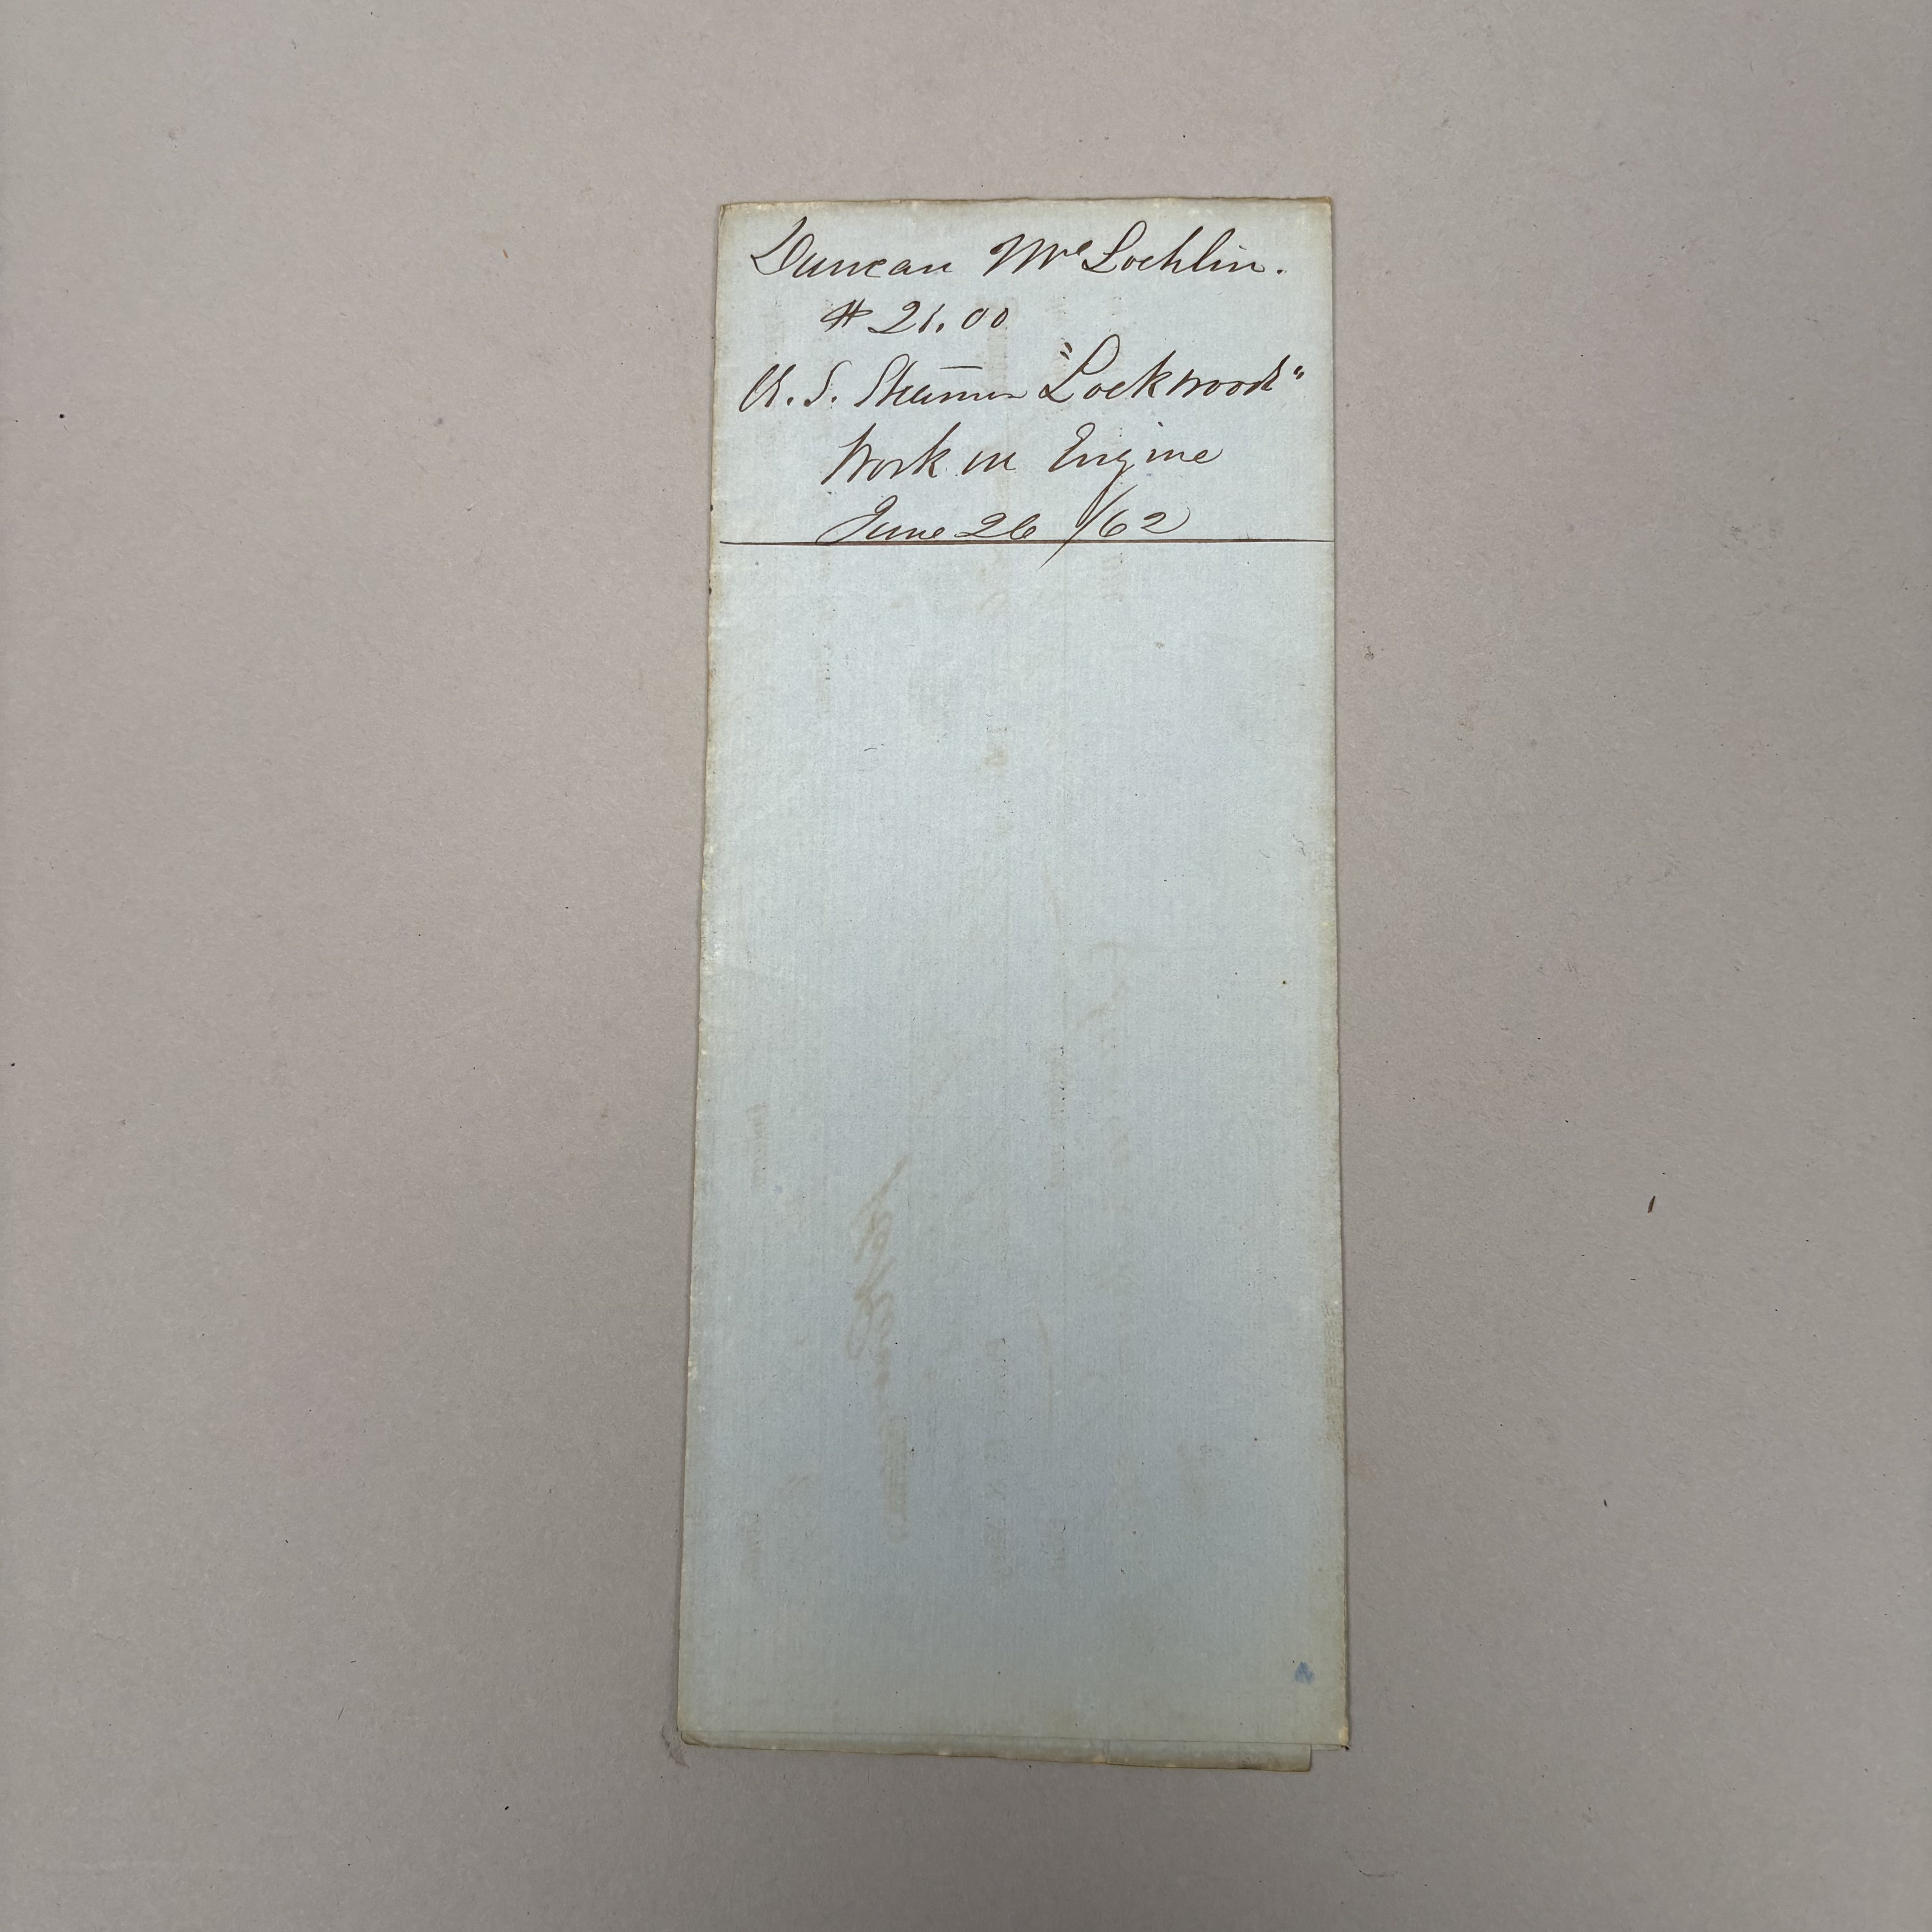 Duncan McLochlin.
$21.00
U.S. Steamer "Lockwood"
Work on Engine
June 26 /62